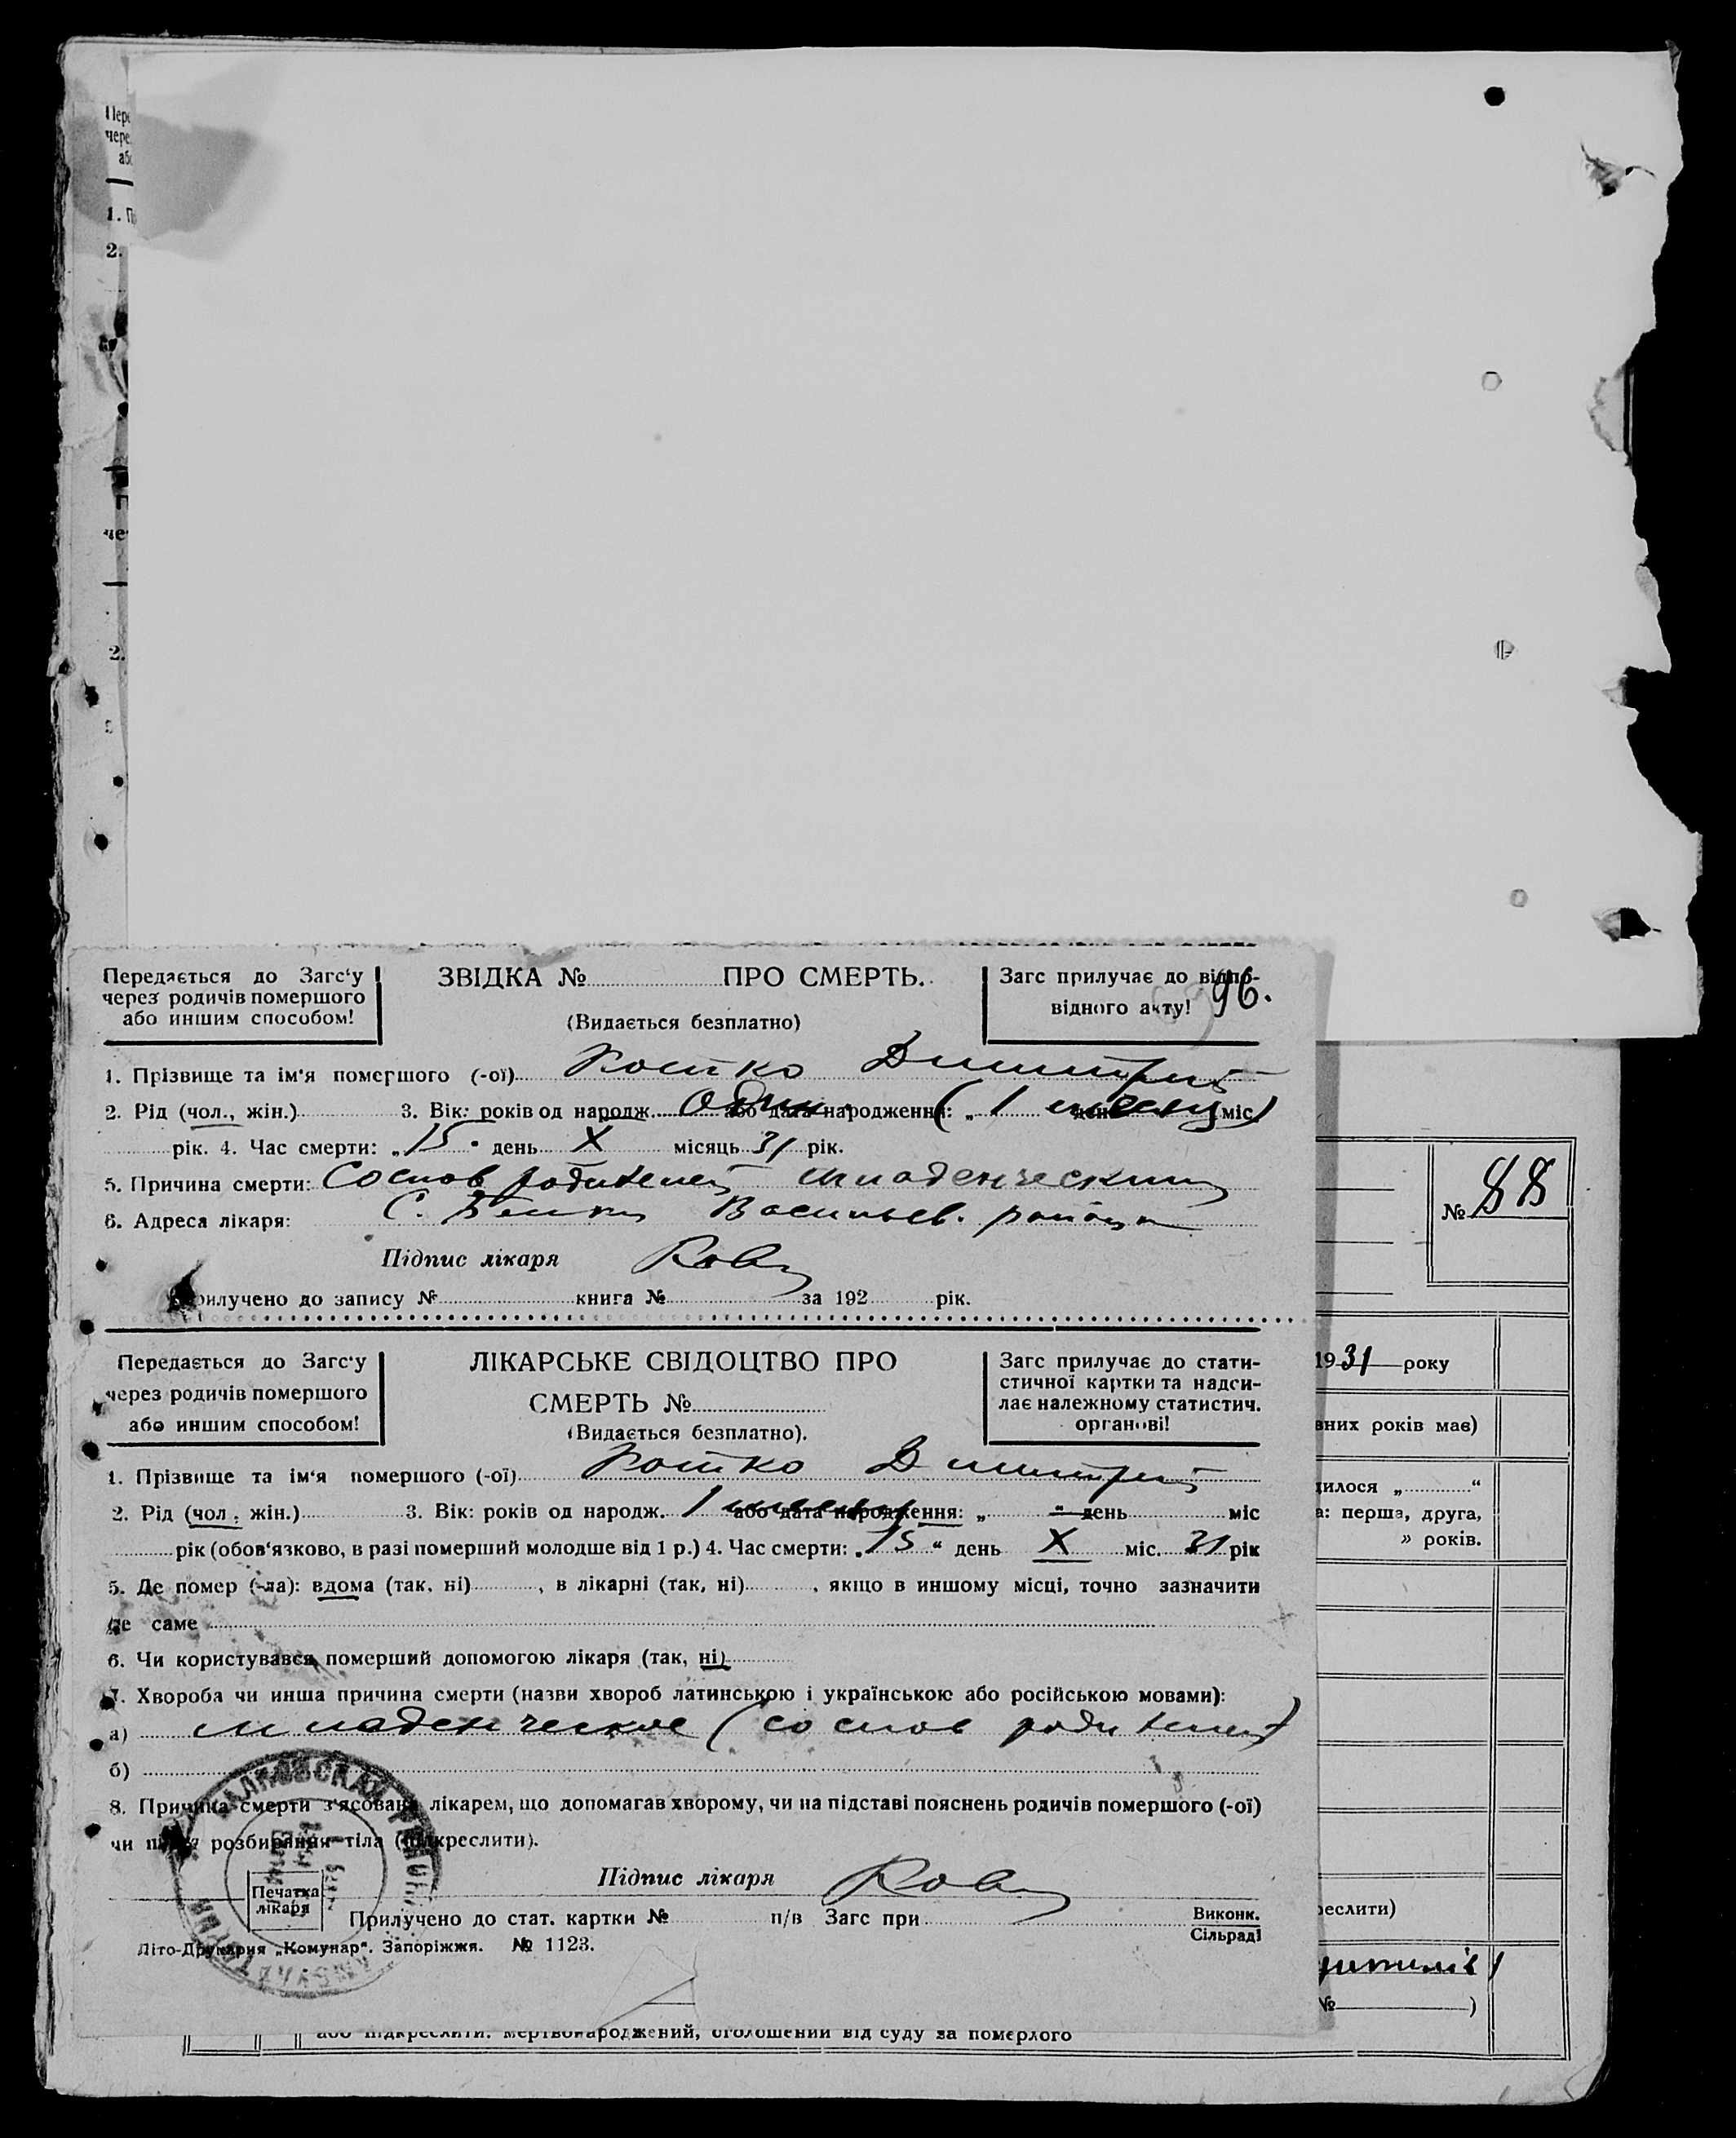 Передається до Загс'у
через родичів помершого
або иншим способом!
ЗВІДКА № ПРО СМЕРТЬ.
(Видається безплатно)
Загс прилучає до відпо-
відного акту!
96.
1. Прізвище та ім'я помершого (-ої) Костко Димитрий
2. Рід (чол., жін.) 3. Вік: років од народж. Один або дата народження: „ (1 месяц) день міс.
рік. 4. Час смерти: „15" день X місяць 31 рік.
5. Причина смерти: со слов родителей младенческий
6. Адреса лікаря: С. Васильев. района
Підпис лікаря
Прилучено до запису № книга № за 192 рік.
Передається до Загс'у
через родичів помершого
або иншим способом!
ЛІКАРСЬКЕ СВІДОЦТВО ПРО
СМЕРТЬ №
(Видається безплатно).
Загс прилучає до стати-
стичної картки та надси-
лає належному статистич.
органові!
1. Прізвище та ім'я помершого (-ої) Костко Димитрий
2. Рід (чол., жін.) 3. Вік: років од народж. 1 месяц або дата народження: „ " день міс
рік (обов'язково, в разі померший молодше від 1 р.) 4. Час смерти: „15" день X міс. 31 рік
5. Де помер (-ла): вдома (так, ні) , в лікарні (так, ні) , якщо в иншому місці, точно зазначити
де саме
6. Чи користувався померший допомогою лікаря (так, ні)
7. Хвороба чи инша причина смерти (назви хвороб латинською і українською або російською мовами):
а) младенческое (со слов родителей)
б)
8. Причина смерти з'ясована лікарем, що допомагав хворому, чи на підставі пояснень родичів помершого (-ої)
чи після розбирання тіла (підкреслити).
Підпис лікаря
Печатка
лікаря
Прилучено до стат. картки № п/в Загс при Виконк.
Сільраді
Літо-Друкарня „Комунар". Запоріжжя. № 1123.
№ 88
1931 року
вних років має)
дилося „ "
а: перша, друга,
» років.
реслити)
№ )
або підкреслити: мертвонароджений, оголошений від суду за померлого